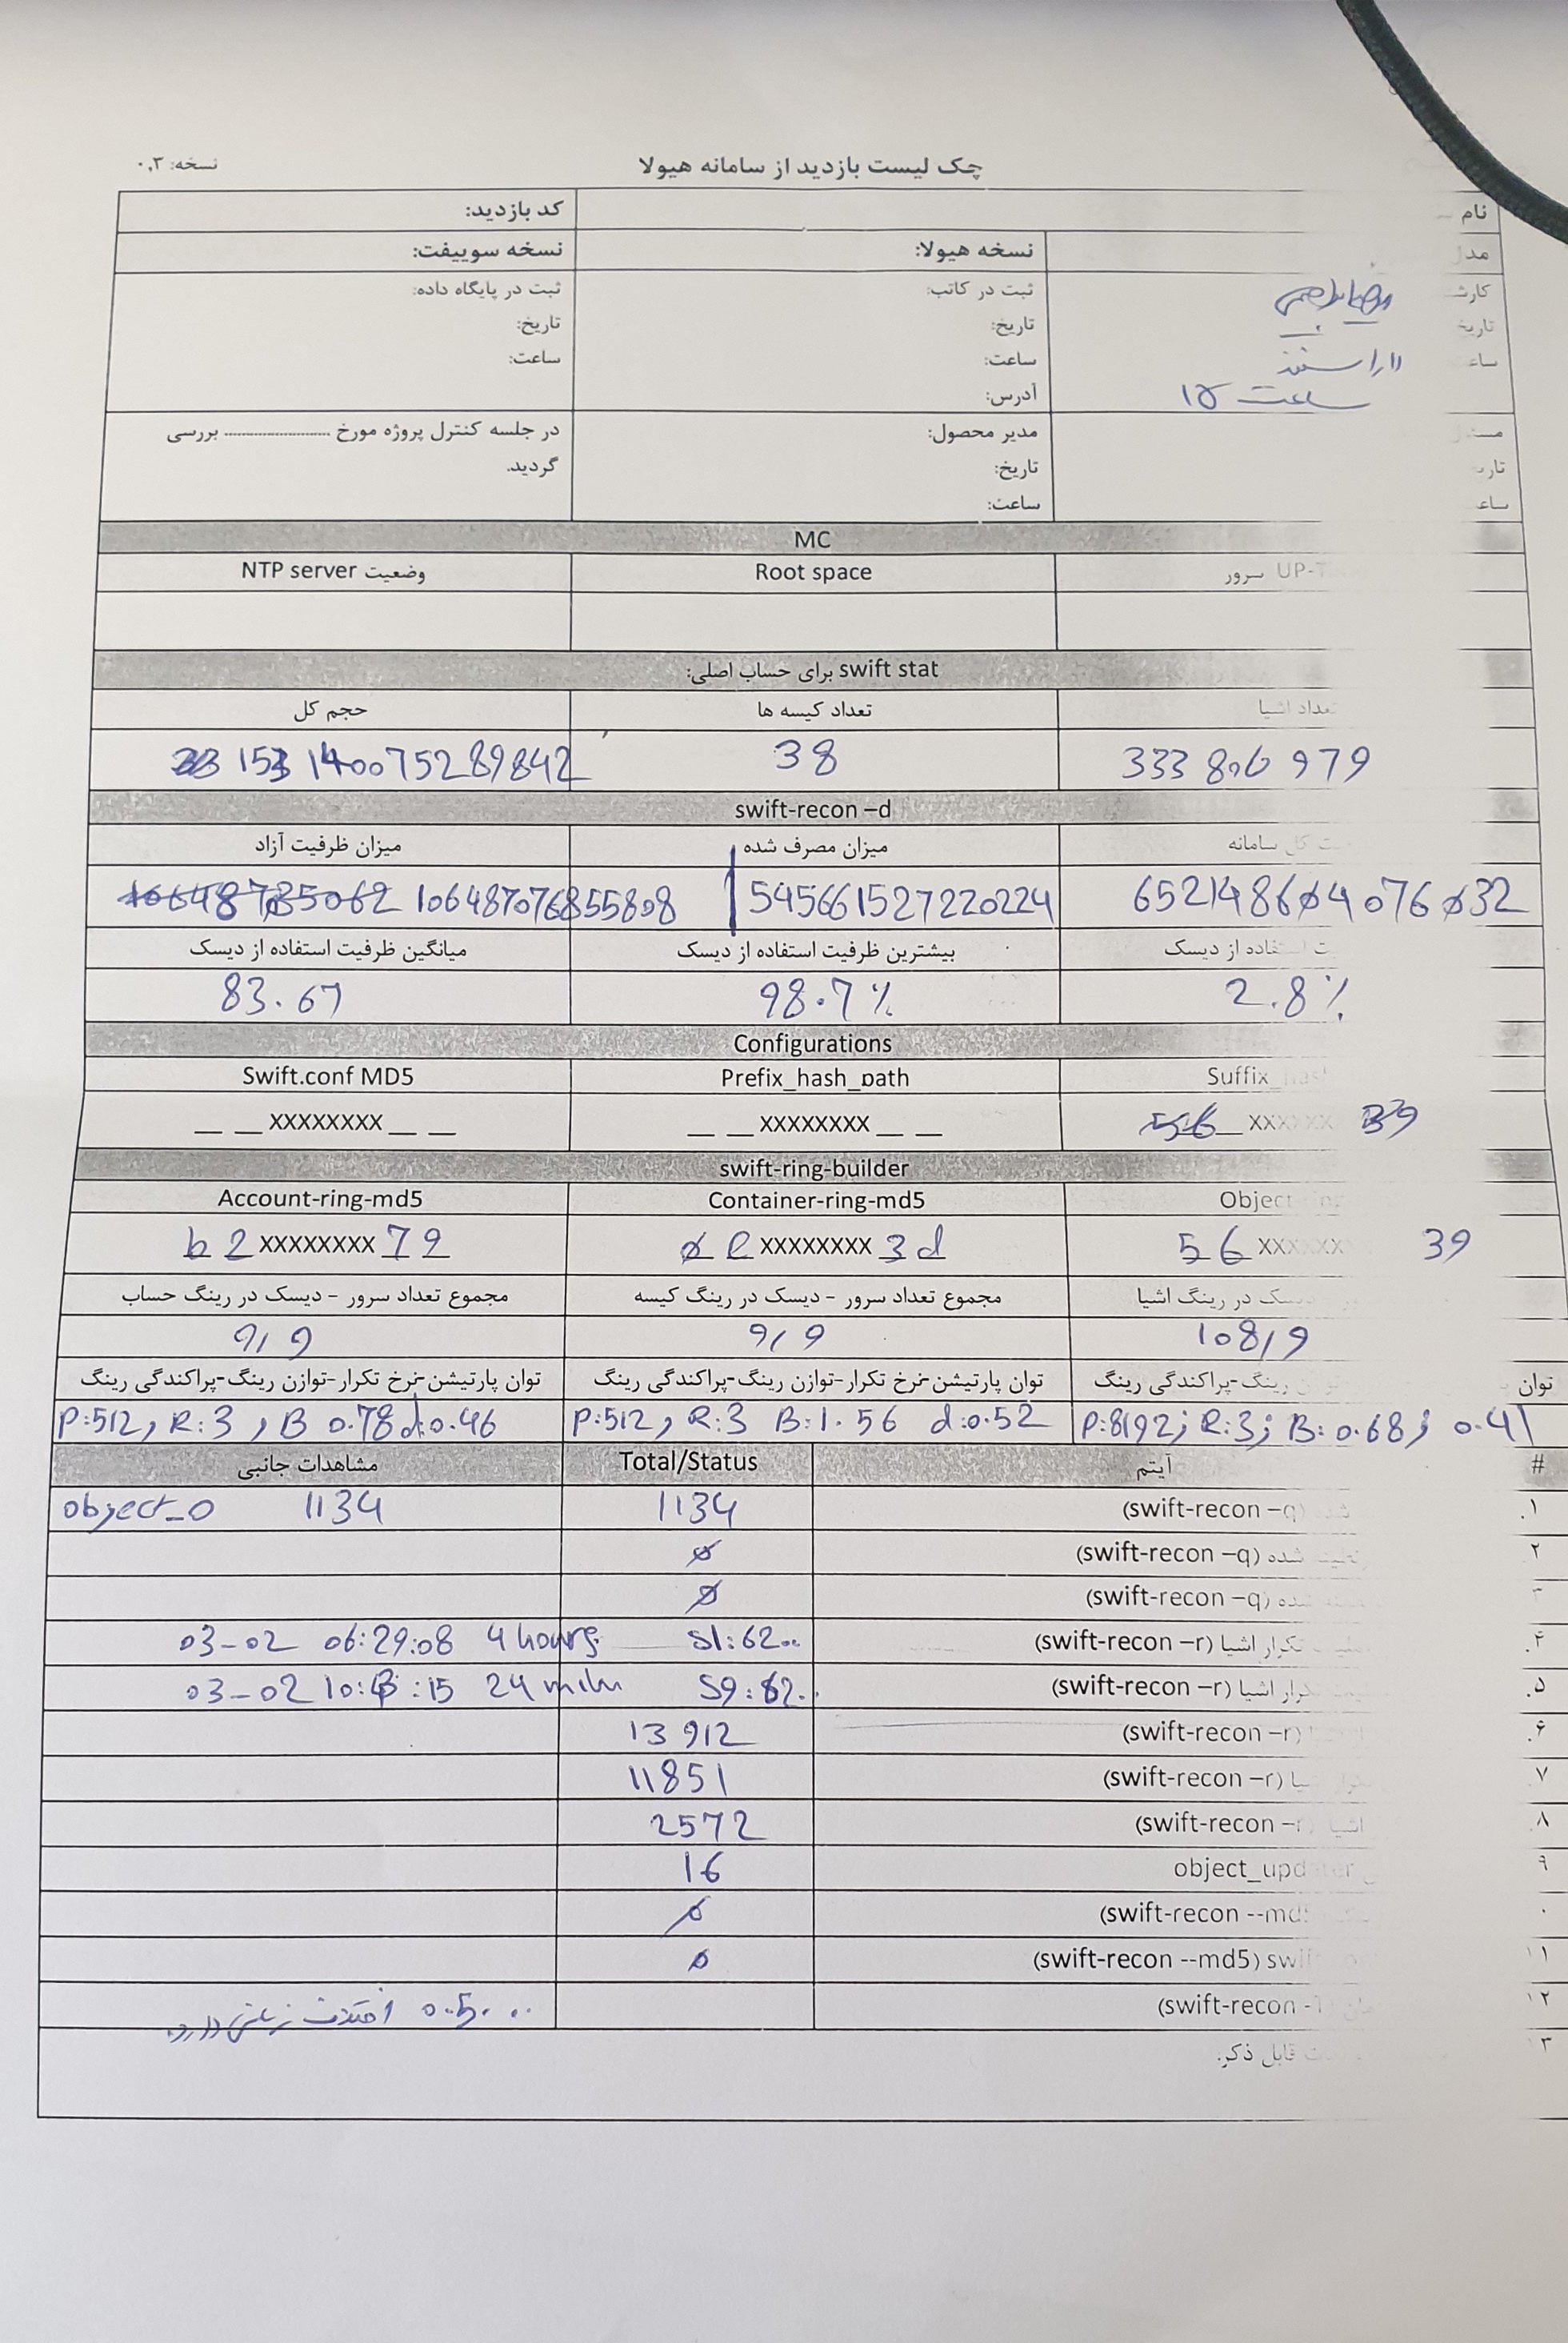 چک لیست بازدید از سامانه هیولا
نسخه: ۰,۳
نام
کد بازدید:
نسخه هیولا:
نسخه سوییفت:
ثبت در کاتب:
ثبت در پایگاه داده:
تاریخ:
تاریخ:
ساعت:
ساعت:
ساعت ۱۵
آدرس:
مدیر محصول:
در جلسه کنترل پروژه مورخ .......................... بررسی
تاریخ:
گردید.
ساعت:
MC
سرور
Root space
وضعیت NTP server
swift stat برای حساب اصلی:
تعداد اشیا
تعداد کیسه ها
حجم کل
333 806 979
38
153 140075289842
swift-recon –d
کل سامانه
میزان مصرف شده
میزان ظرفیت آزاد
652148604076032
545661527220224
106487076855808
از دیسک
بیشترین ظرفیت استفاده از دیسک
میانگین ظرفیت استفاده از دیسک
2.8%
98.7%
83.67
Configurations
Suffix_
Prefix_hash_path
Swift.conf MD5
39
__ __ XXXXXXXX __ __
__ __ XXXXXXXX __ __
swift-ring-builder
Object
Container-ring-md5
Account-ring-md5
56 XXXXXX 39
e XXXXXXXX 3d
b2 XXXXXXXX 79
دیسک در رینگ اشیا
مجموع تعداد سرور – دیسک در رینگ کیسه
مجموع تعداد سرور – دیسک در رینگ حساب
108/9
9/9
9/9
توان رینگ-پراکندگی رینگ
توان پارتیشن-نرخ تکرار-توازن رینگ-پراکندگی رینگ
توان پارتیشن-نرخ تکرار-توازن رینگ-پراکندگی رینگ
P:8192; R:3; B:0.68; 0.41
P:512, R:3 B:1.56 d:0.52
P:512, R:3, B 0.78 d:0.46
#
آیتم
Total/Status
مشاهدات جانبی
۱.
(swift-recon –q)
1134
object_0 1134
۲
شده (swift-recon –q)
ø
۳
شده (swift-recon –q)
ø
۴.
تکرار اشیا (swift-recon –r)
S1:6200
03-02 06:29:08 4 hours
۵.
تکرار اشیا (swift-recon –r)
03-02 24 min
۶.
(swift-recon –r)
13912
۷
(swift-recon –r)
11851
۸.
اشیا (swift-recon –r)
2572
۹
object_updater
16
۰
(swift-recon --md5
ø
۱۱
(swift-recon --md5)
ø
۱۲
(swift-recon -T)
اختلاف زمانی دارد
۱۳
قابل ذکر.